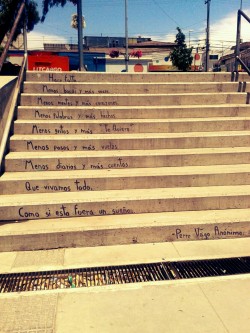 Hace falta
Menos balas y más
Menos y más canciones
Menos palabras y más hechos
Menos gritos y más Te Quiero
Menos pasos y más vuelos
Menos diarios y más cuentos
Que vivamos todo.
Como si esto fuera un sueño.
-Perro Vago Anónimo.